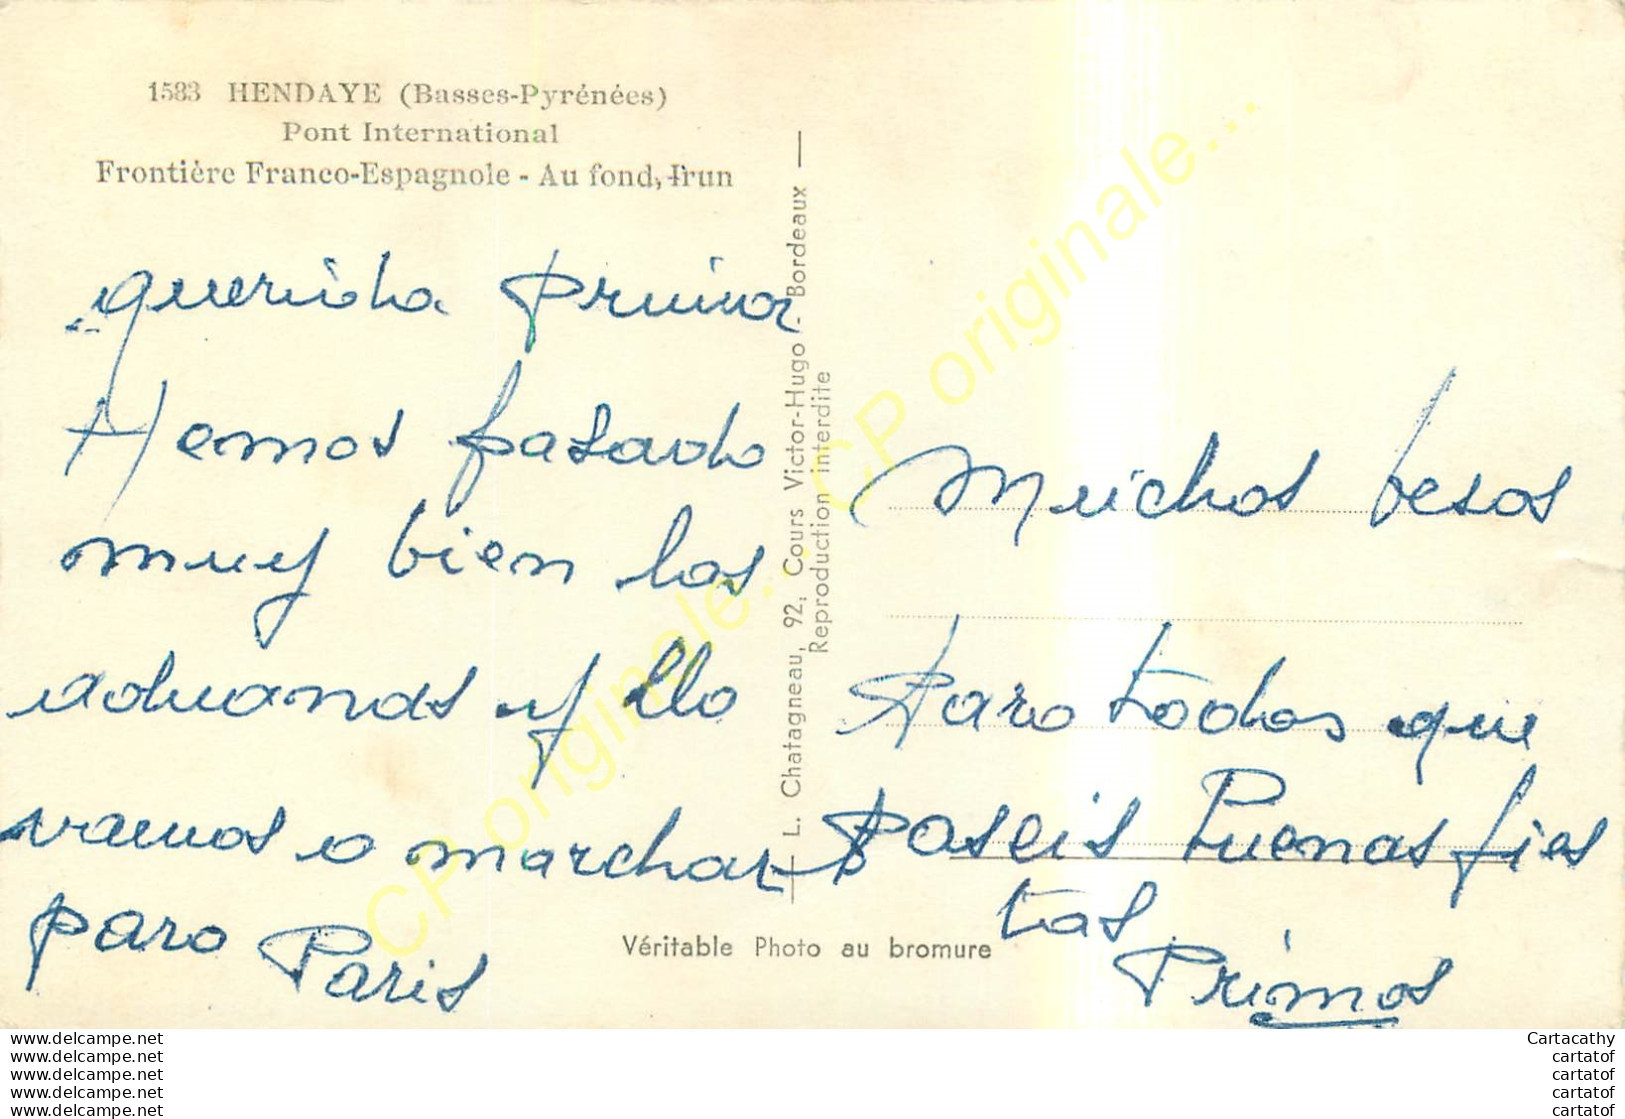 1583 HENDAYE (Basses-Pyrénées)
Pont International
Frontière Franco-Espagnole - Au fond, Irun
querida Prima
Hemos pasado
muy bien las
aduanas y llo
vamos a marchar
para Paris
L. Chatagneau, 92, Cours Victor-Hugo - Bordeaux
Reproduction interdite
Muchos besos
Para todos que
paseis Buenas fies
tas
Primos
Véritable Photo au bromure
CP originale... CP originale... CP originale...
www.delcampe.net
www.delcampe.net
www.delcampe.net
www.delcampe.net
www.delcampe.net
Cartacathy
cartatof
cartatof
cartatof
cartatof